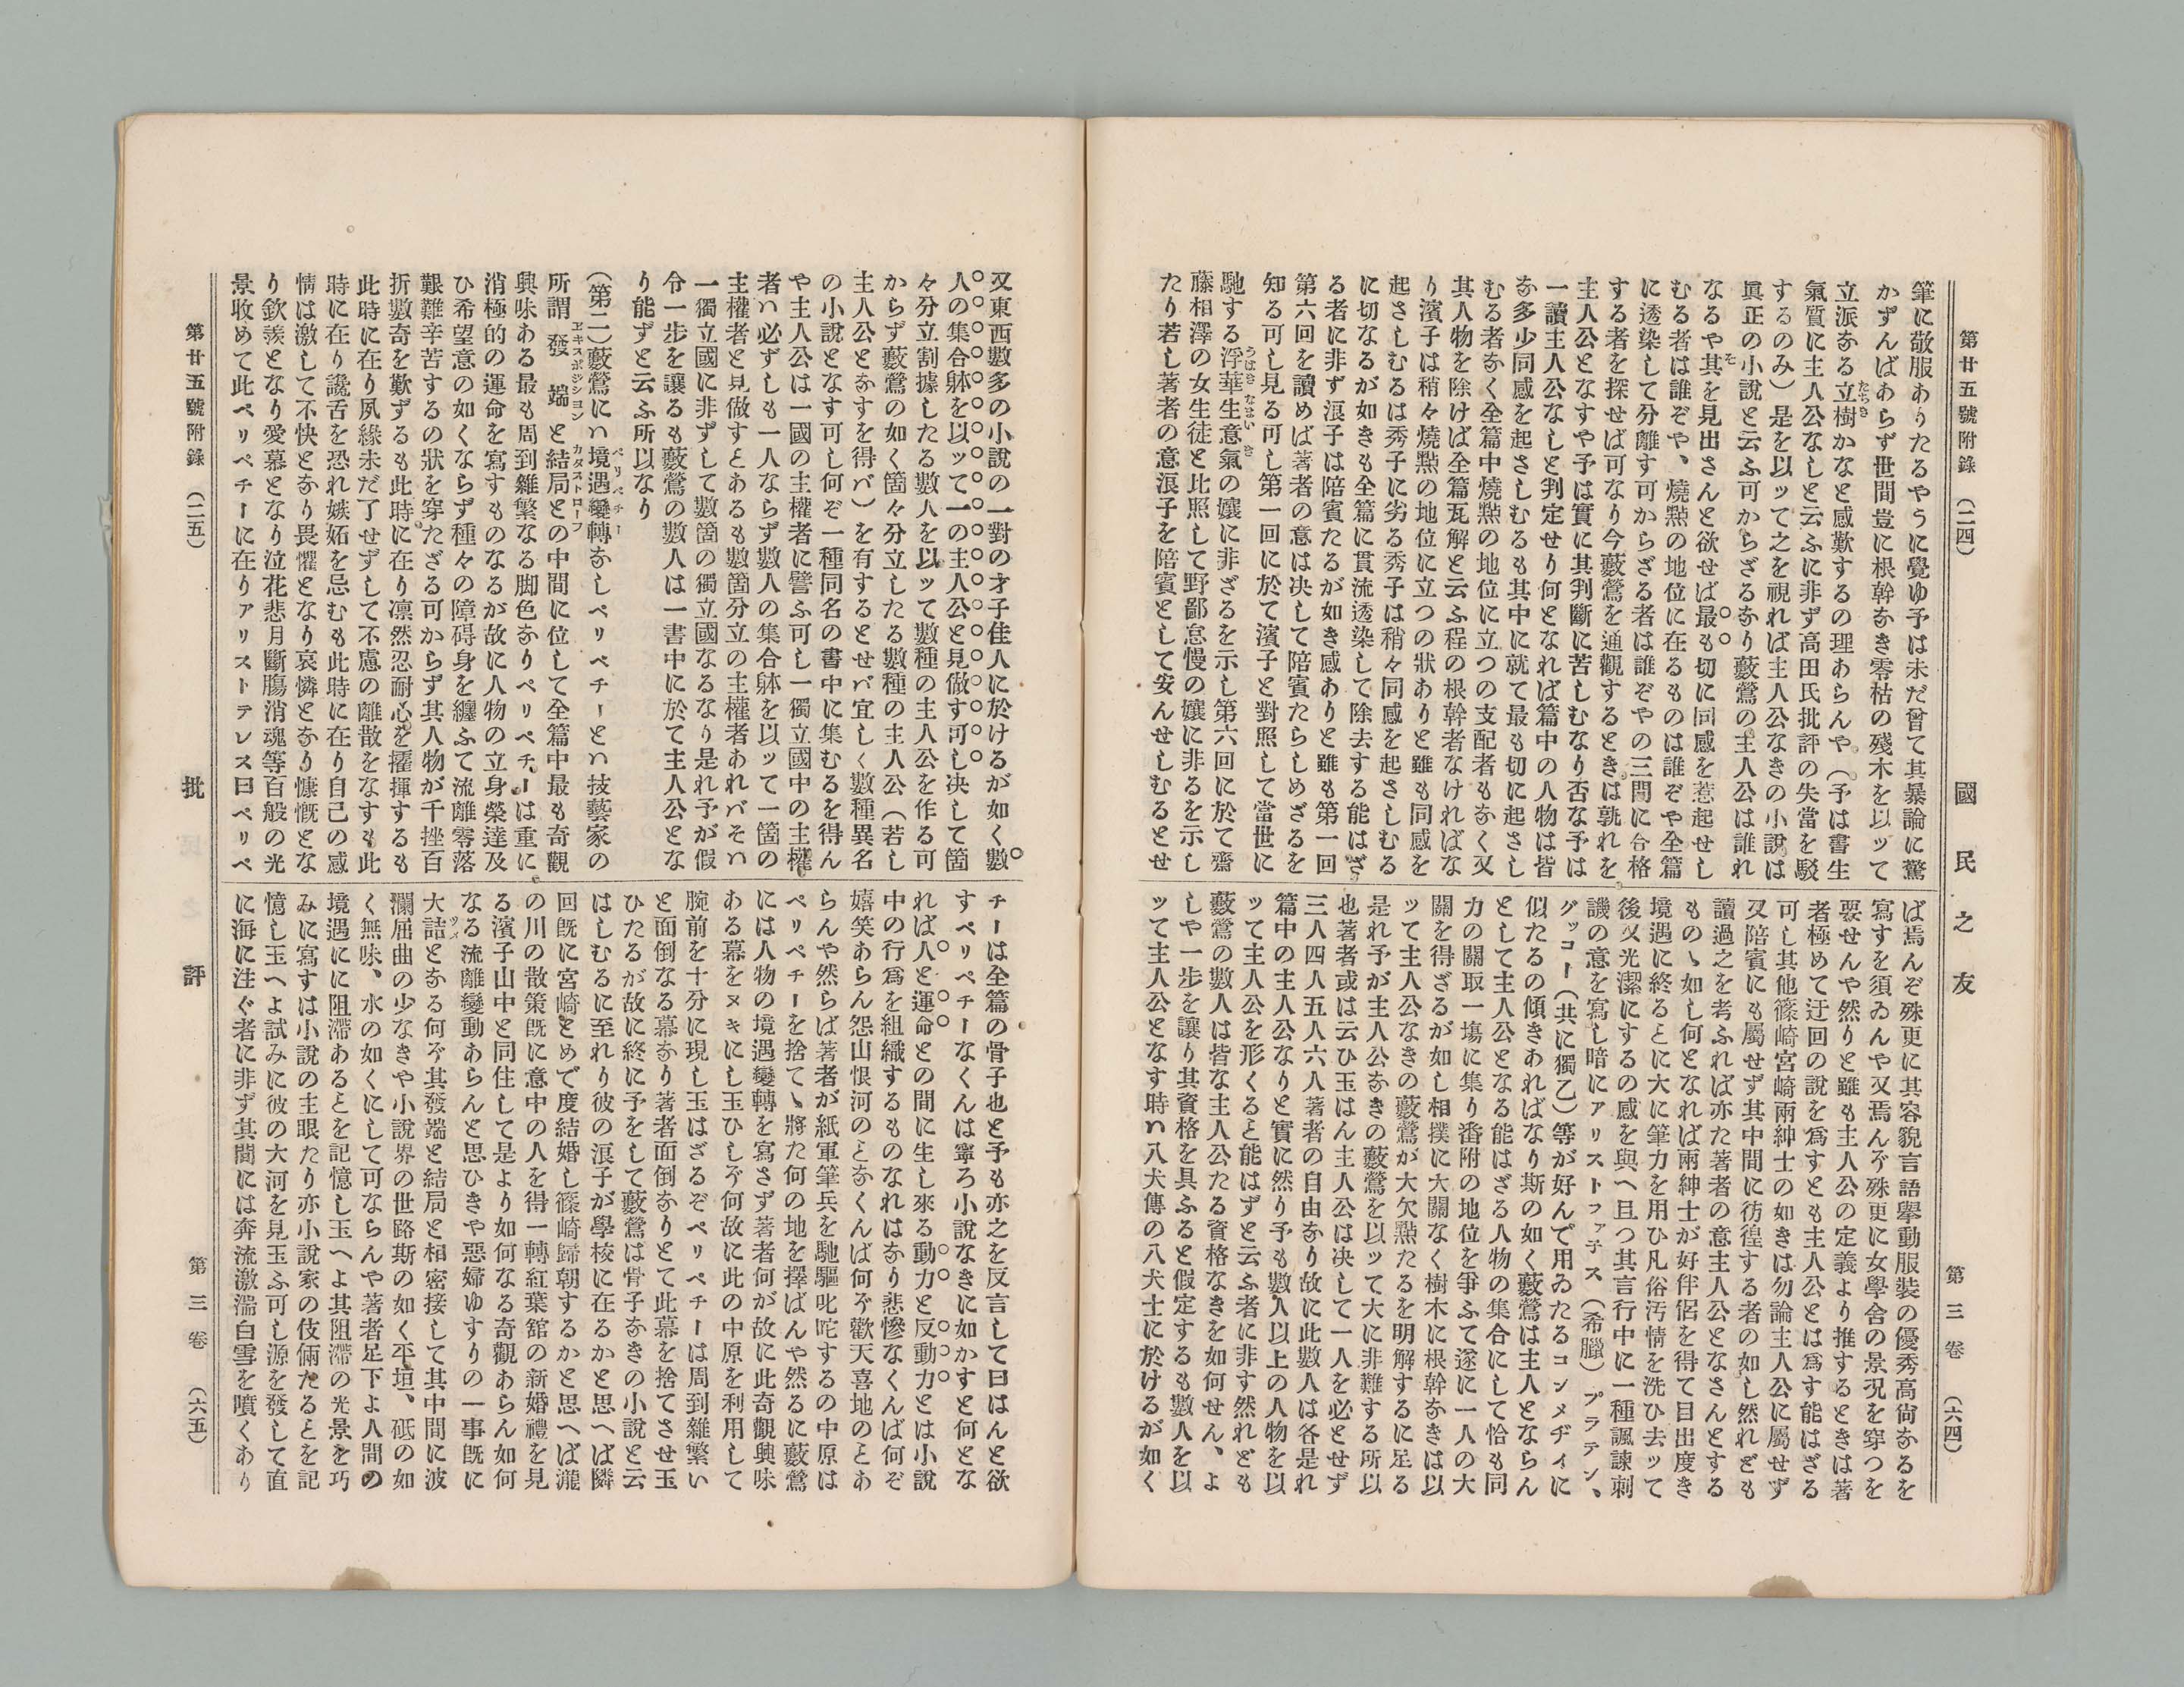 第廿五號附錄 (二四)
國民之友
第三卷 (六四)
筆に敬服ありたるやうに覺ゆ予は未だ曾て其暴論に驚
かずんばあらず世間豈に根幹なき零枯の殘木を以ッて
立派なる立樹かなと感歎するの理あらんや。(予は書生
氣質に主人公なしと云ふに非ず高田氏批評の失當を駁
するのみ)是を以ッて之を視れば主人公なきの小說は
眞正の小說と云ふ可からざるなり藪鶯の主人公は誰れ
なるや其を見出さんと欲せば最も切に同感を惹起せし
むる者は誰ぞや、燒㸃の地位に在るものは誰ぞや全篇
に透染して分離す可からざる者は誰ぞやの三問に合格
する者を探せば可なり今藪鶯を通觀するときは孰れを
主人公となすや予は實に其判斷に苦しむなり否な予は
一讀主人公なしと判定せり何となれば篇中の人物は皆
な多少同感を起さしむるも其中に就て最も切に起さし
むる者なく全篇中燒㸃の地位に立つの支配者もなく又
其人物を除けば全篇瓦解と云ふ程の根幹者なければな
り濱子は稍々燒㸃の地位に立つの狀ありと雖も同感を
起さしむるは秀子に劣る秀子は稍々同感を起さしむる
に切なるが如きも全篇に貫流透染して除去する能はざ
る者に非ず浪子は陪賓たるが如き感ありと雖も第一回
第六回を讀めば著者の意は决して陪賓たらしめざるを
知る可し見る可し第一回に於て濱子と對照して當世に
馳する浮華生意氣の孃に非ざるを示し第六回に於て齋
藤相澤の女生徒と比照して野鄙怠慢の孃に非るを示し
たり若し著者の意浪子を陪賓として安んせしむるとせ
ば焉んぞ殊更に其容貌言語擧動服裝の優秀高尙なるを
寫すを須ゐんや又焉んぞ殊更に女學舍の景况を穿つを
要せんや然りと雖も主人公の定義より推するときは著
者極めて迂回の說を爲すとも主人公とは爲す能はざる
可し其他篠崎宮崎兩紳士の如きは勿論主人公に屬せず
又陪賓にも屬せず其中間に彷徨する者の如し然れども
讀過之を考ふれば亦た著者の意主人公となさんとする
ものゝ如し何となれば兩紳士が好伴侶を得て目出度き
境遇に終るとに大に筆力を用ひ凡俗汚情を洗ひ去ッて
後又光潔にするの感を與へ且つ其言行中に一種諷諫刺
譏の意を寫し暗にアリストファ子ス(希臘)プラテン、
グッコー(共に獨乙)等が好んで用ゐたるコンメヂィに
似たるの傾きあればなり斯の如く藪鶯は主人とならん
として主人公となる能はざる人物の集合にして恰も同
力の關取一塲に集り番附の地位を爭ふて遂に一人の大
關を得ざるが如し相撲に大關なく樹木に根幹なきは以
ッて主人公なきの藪鶯が大欠㸃たるを明解するに足る
是れ予が主人公なきの藪鶯を以ッて大に非難する所以
也著者或は云ひ玉はん主人公は决して一人を必とせず
三人四人五人六人著者の自由なり故に此數人は各是れ
篇中の主人公なりと實に然り予も數人以上の人物を以
ッて主人公を形くると能はずと云ふ者に非す然れども
藪鶯の數人は皆な主人公たる資格なきを如何せん、よ
しや一步を讓り其資格を具ふると假定するも數人を以
ッて主人公となす時ハ八犬傳の八犬士に於けるが如く
又東西數多の小說の一對の才子佳人に於けるが如く數
人の集合躰を以ッて一の主人公と見做す可し决して箇
々分立割據したる數人を以ッて數種の主人公を作る可
からず藪鶯の如く箇々分立したる數種の主人公(若し
主人公となすを得バ)を有するとせバ宜しく數種異名
の小說となす可し何ぞ一種同名の書中に集むるを得ん
や主人公は一國の主權者に譬ふ可し一獨立國中の主權
者ハ必ずしも一人ならず數人の集合躰を以ッて一箇の
主權者と見做すとあるも數箇分立の主權者あれバそハ
一獨立國に非ずして數箇の獨立國なるなり是れ予が假
令一步を讓るも藪鶯の數人は一書中に於て主人公とな
り能ずと云ふ所以なり
(第二)藪鶯にハ境遇變轉なしペリペチーとハ技藝家の
所謂發端と結局との中間に位して全篇中最も奇觀
興味ある最も周到雜繁なる脚色なりペリペチーは重に
消極的の運命を寫すものなるが故に人物の立身榮達及
ひ希望意の如くならず種々の障碍身を纏ふて流離零落
艱難辛苦するの狀を穿たざる可からず其人物が千挫百
折數奇を歎ずるも此時に在り凛然忍耐心を擢揮するも
此時に在り夙緣未だ了せずして不慮の離散をなすも此
時に在り讒舌を恐れ嫉妬を忌むも此時に在り自己の感
情は激して不快となり畏懼となり哀憐となり慷慨とな
り欽羨となり愛慕となり泣花悲月斷膓消魂等百般の光
景收めて此ペリペチーに在りアリストテレス曰ペリペ
チーは全篇の骨子也と予も亦之を反言して曰はんと欲
すペリペチーなくんは寧ろ小說なきに如かすと何とな
れば人と運命との間に生し來る動力と反動力とは小說
中の行爲を組織するものなれはなり悲慘なくんば何ぞ
嬉笑あらん怨山恨河のとなくんば何ぞ歡天喜地のとあ
らんや然らば著者が紙軍筆兵を馳驅叱咤するの中原は
ペリペチーを捨てゝ將た何の地を擇ばんや然るに藪鶯
には人物の境遇變轉を寫さず著者何が故に此奇觀興味
ある幕をヌキにし玉ひしぞ何故に此の中原を利用して
腕前を十分に現し玉はざるぞペリペチーは周到雜繁い
と面倒なる幕なり著者面倒なりとて此幕を捨てさせ玉
ひたるが故に終に予をして藪鶯は骨子なきの小說と云
はしむるに至れり彼の浪子が學校に在るかと思へば隣
回既に宮崎とめで度結婚し篠崎歸朝するかと思へば瀧
の川の散策既に意中の人を得一轉紅葉舘の新婚禮を見
る濱子山中と同住して是より如何なる奇觀あらん如何
なる流離變動あらんと思ひきや惡婦ゆすりの一事既に
大詰となる何ぞ其發端と結局と相密接して其中間に波
瀾屈曲の少なきや小說界の世路斯の如く平坦、砥の如
く無味、水の如くにして可ならんや著者足下よ人間の
境遇にに阻滯あるとを記憶し玉へよ其阻滯の光景を巧
みに寫すは小說の主眼たり亦小說家の伎倆たるとを記
憶し玉へよ試みに彼の大河を見玉ふ可し源を發して直
に海に注ぐ者に非ず其間には奔流激湍白雪を噴くあり
第廿五號附錄 (二五)
批評
第三卷 (六五)